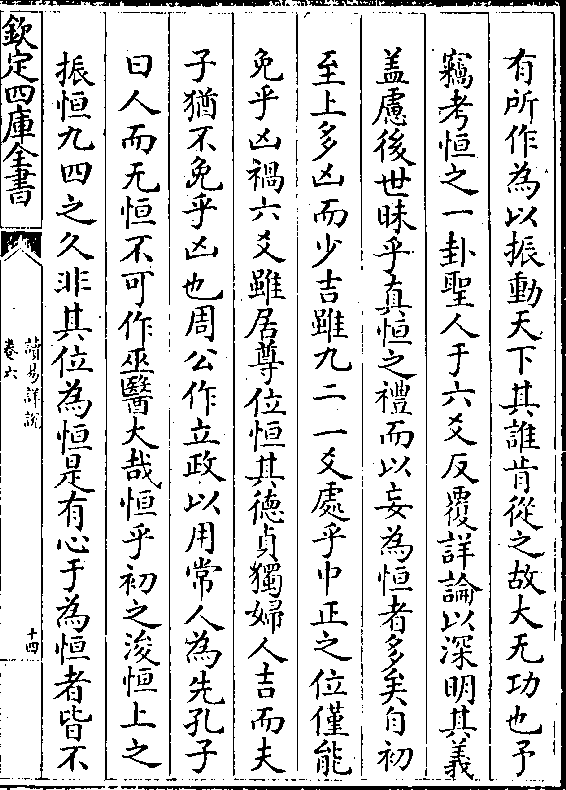 有所作為以振動天下其誰肯從之故大无功也予
竊考恒之一卦聖人于六爻反覆詳論以深明其義
盖慮後世昧乎真恒之禮而以妄為恒者多矣自初
至上多凶而少吉雖九二一爻處乎中正之位僅能
免乎凶禍六爻雖居尊位恒其德貞獨婦人吉而夫
子猶不免乎凶也周公作立政以用常人為先孔子
曰人而无恒不可作巫醫大哉恒乎初之浚恒上之
振恒九四之久非其位為恒是有心于為恒者皆不
欽定四庫全書
讀易詳說
卷六
十四